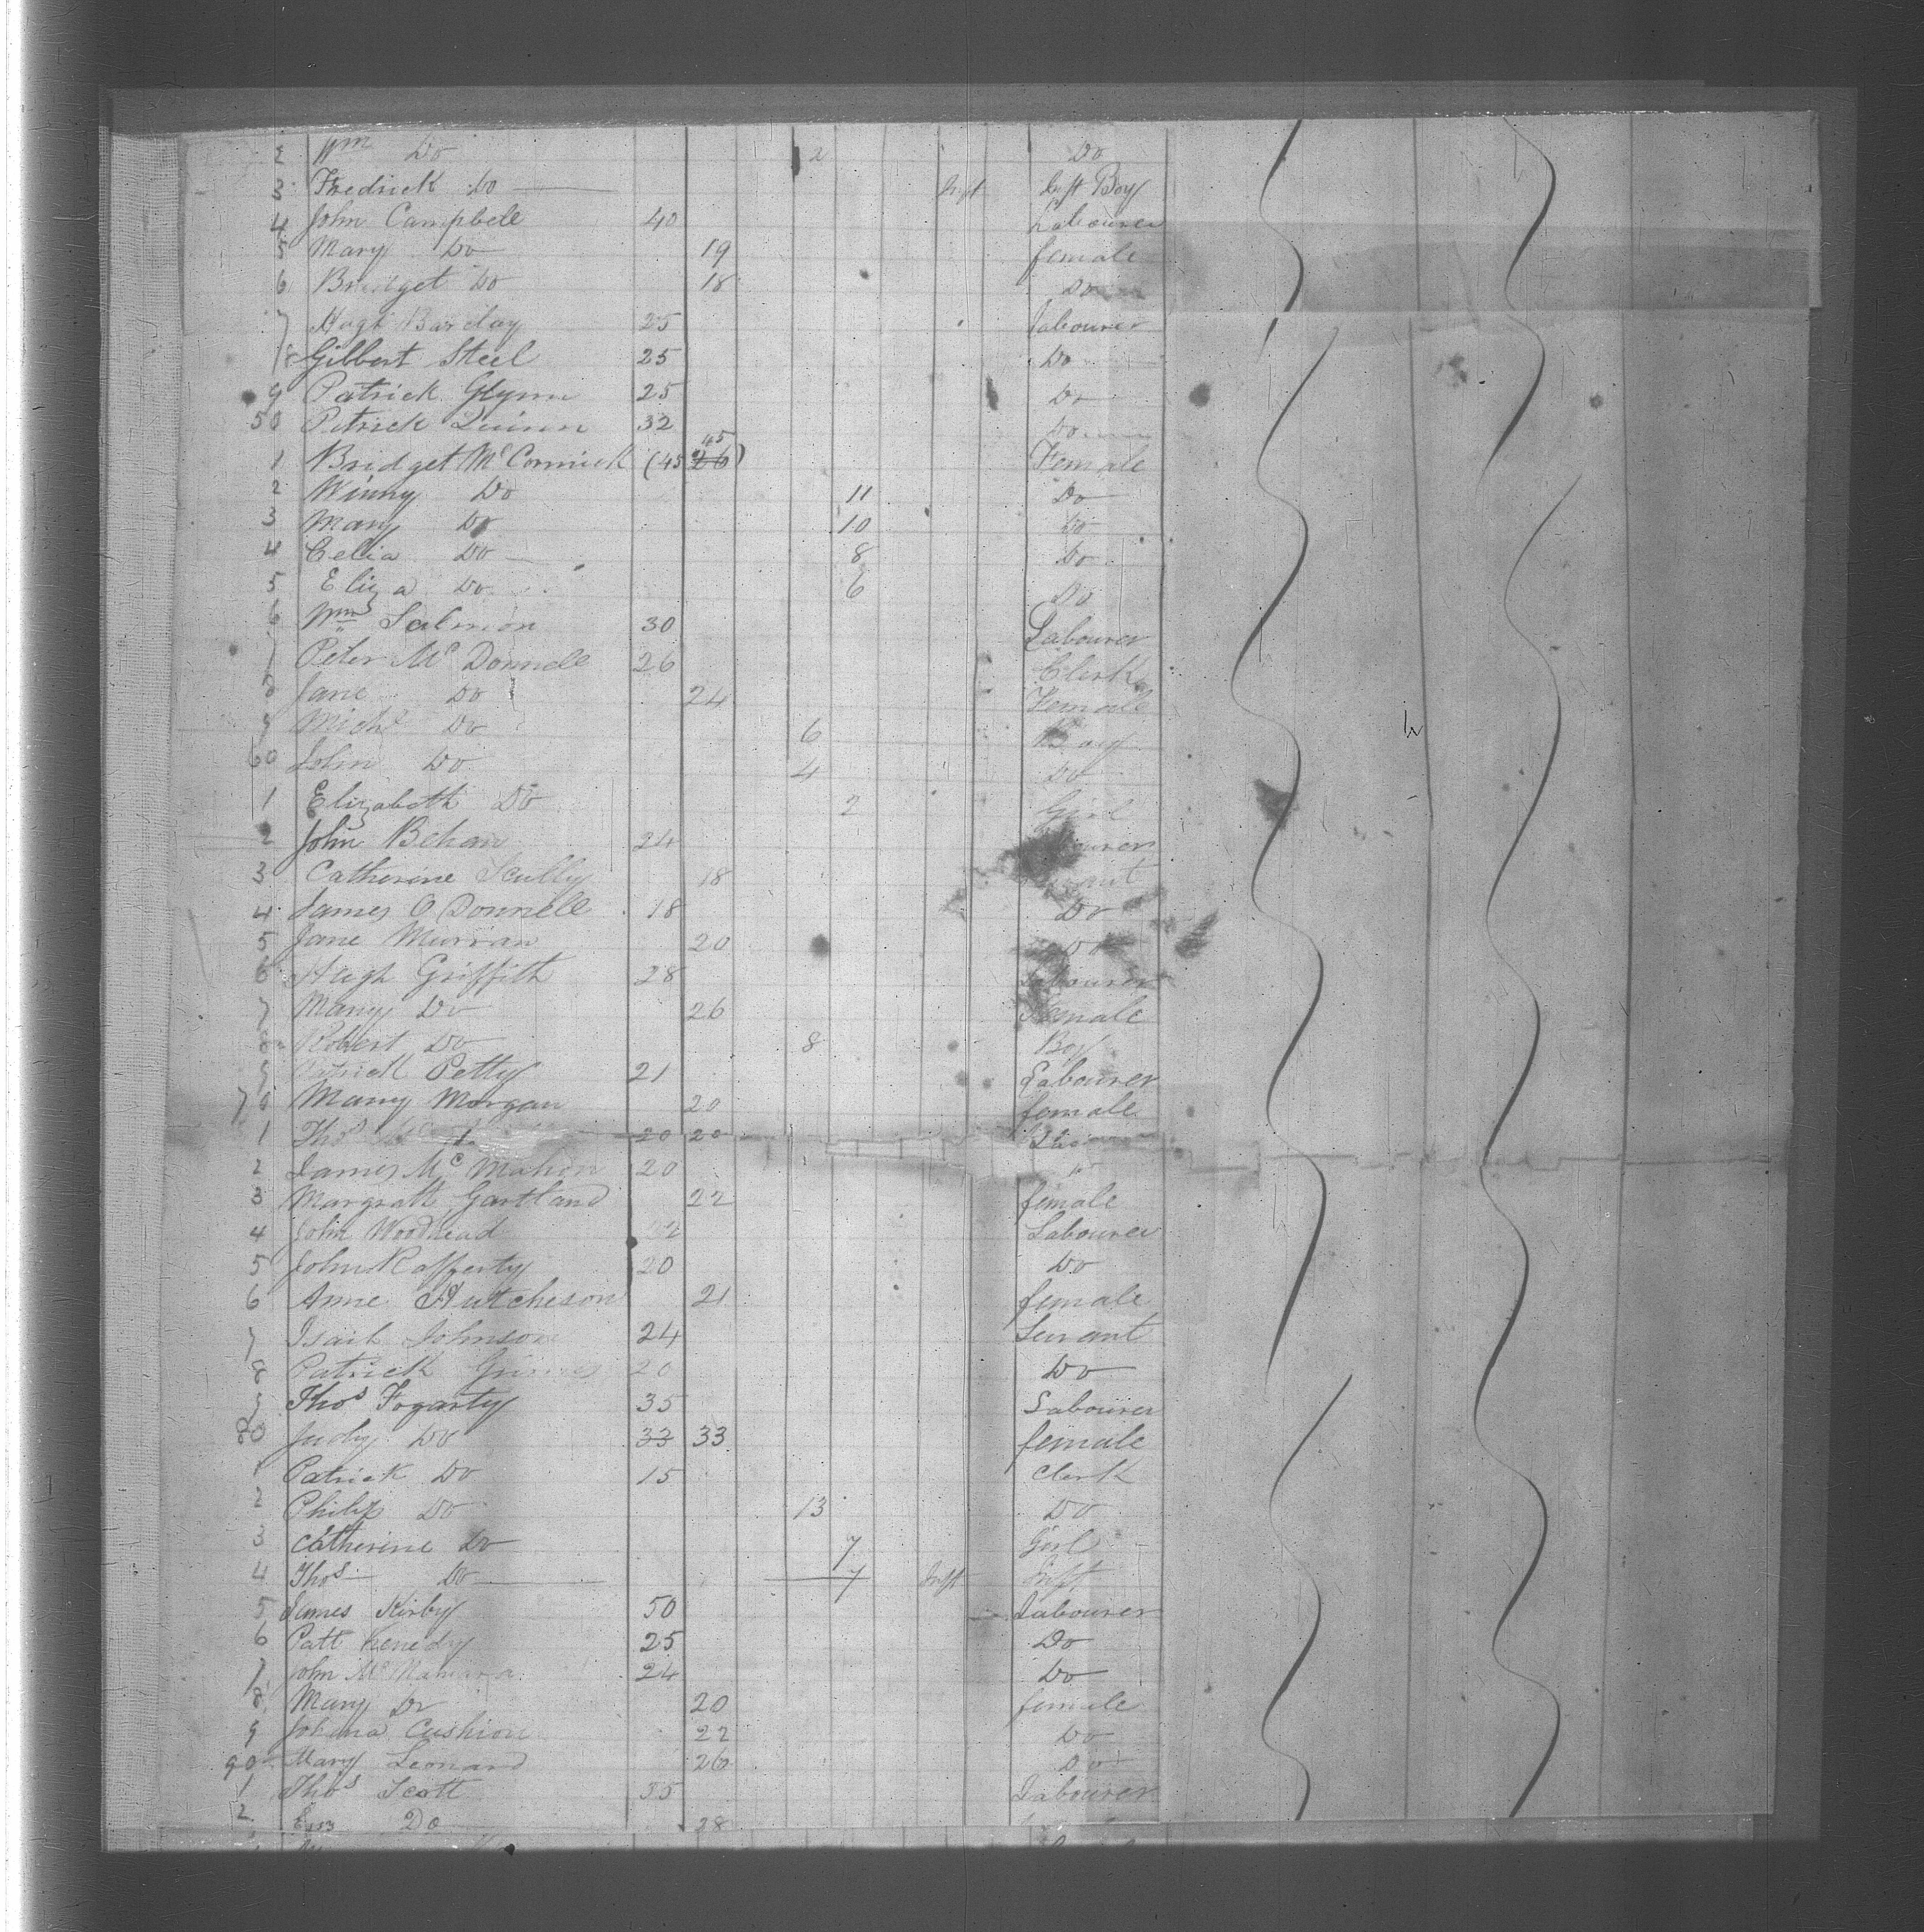 2 Wm Do 2 Do
3 Fredrick Do Inft Inft Boy
4 John Campbell 40 Labourer
5 Mary Do 19 female
6 Bridget Do 18 Do
7 Hugh Barclay 25 Labourer
8 Gilbert Steel 25 Do
9 Patrick Glynn 25 Do
50 Patrick Quinn 32 Do
1 Bridget McCormick (45 26) 45 Female
2 Winny Do 11 Do
3 Mary Do 10 Do
4 Celia Do 8 Do
5 Eliza Do 6 Do
6 Wm Salmon 30 Labourer
7 Peter Mc Donnell 26 Clerk
8 Jane Do 24 Female
9 Michl Do 6 Boy
60 John Do 4 Do
1 Elizabeth Do 2 Girl
2 John Behan 24
3 Catherine Scully 18
4 James O Donnell 18 Do
5 Jane Murran 20 Do
6 Hugh Griffith 28 Labourer
7 Mary Do 26 Female
8 Robert Do 8 Boy
9 Patrick Petty 21 Labourer
70 Mary Morgan 20 female
1 Thos 20 20
2 James Mc Mahon 20
3 Margratt Gartland 22 female
4 John Woodhead 22 Labourer
5 John Rafferty 20 Do
6 Anne Hutcheson 21 female
7 Johnson 24 Servant
8 Patrick Grimes 20 Do
9 Thos Fogarty 35 Labourer
80 Judy Do 33 33 female
1 Patrick Do 15 Clerk
2 Philip Do 13 Do
3 Catherine Do 7 Girl
4 Thos Do 7 Inft Inft
5 James Kirby 50 Labourer
6 Patt Kenedy 25 Do
7 John McNamara 24 Do
8 Mary Do 20 female
9 Johana Cushion 22 Do
90 Mary Leonard 26 Do
1 Thos Scott 35 Labourer
2 Do 28